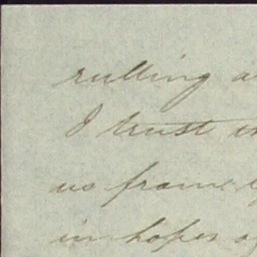 rulling a
I trust
us from
in hopes